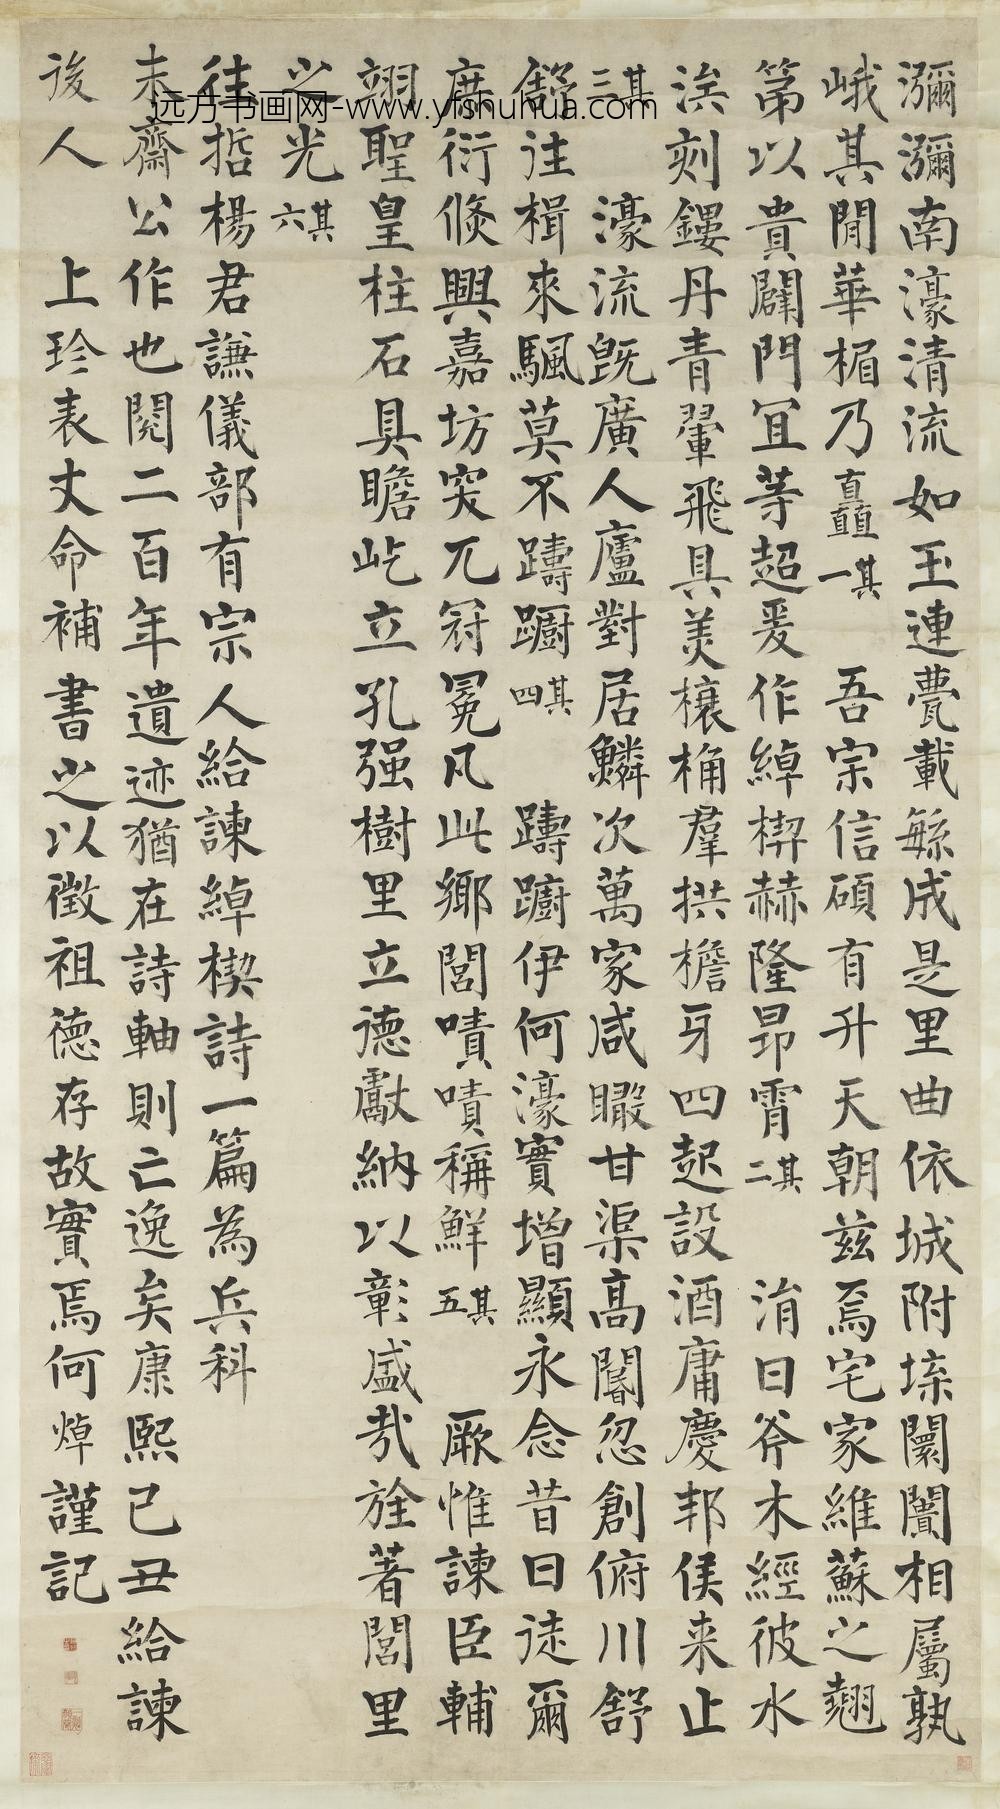 瀰瀰南濠清流如玉連甍載緐成是里曲依城附埰闤闠相屬孰
峨其閒華楣乃矗矗其一 吾宗信碩有升天朝茲焉宅家維蘇之翹
第以貴闢門宜等超爰作綽楔赫隆昂霄其二 涓日斧木經彼水
涘刻鏤丹青翬飛具美榱桷羣拱檐牙四起設酒庸慶邦侯来止
其三 濠流旣廣人廬對居鱗次萬家咸瞰甘渠高闈忽創俯川舒
舒往楫來颿莫不躊躕其四 躊躕伊何濠實增顯永念昔日徒爾
庶衍倐興嘉坊突兀冠冕凡此鄉閭嘖嘖稱鮮其五 厥惟諫臣輔
翊聖皇柱石具瞻屹立孔强樹里立德獻納以彰盛哉旌著閭里
之光其六
往哲楊君謙儀部有宗人給諫綽楔詩一篇為兵科
未齋公作也閱二百年遺迹猶在詩軸則亡逸矣康熙己丑給諫
後人 上珍表丈命補書之以徵祖德存故實焉何焯謹記
远方书画网-www.yfshuhua.com